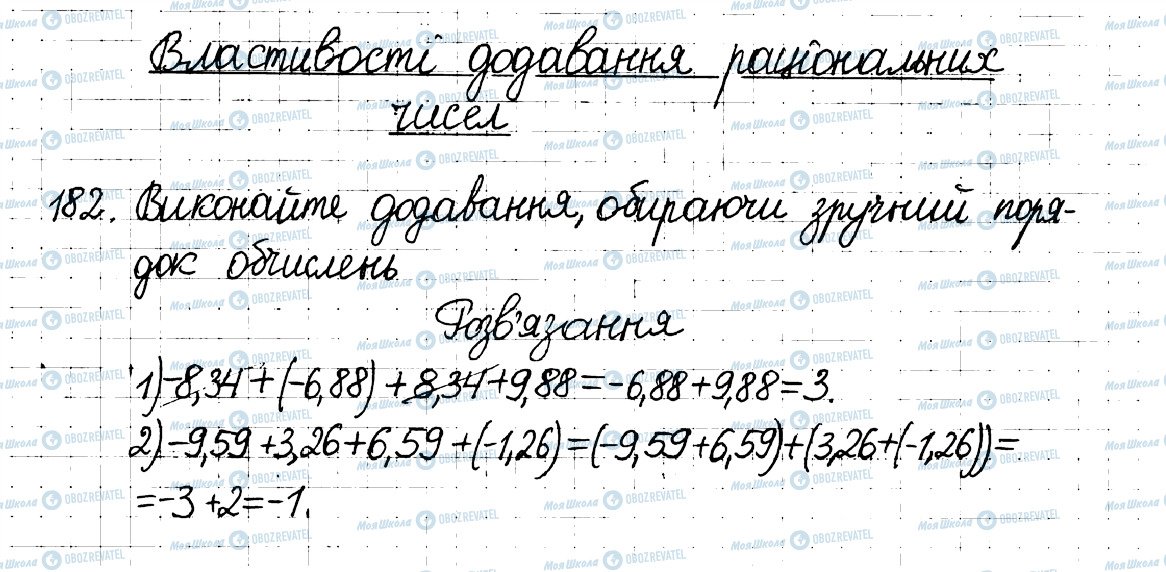 Властивості додавання раціональних
чисел
182. Виконайте додавання, обираючи зручний поря-
док обчислень
Розв'язання
1) -8,34 + (-6,88) + 8,34 + 9,88 = -6,88 + 9,88 = 3.
2) -9,59 + 3,26 + 6,59 + (-1,26) = (-9,59 + 6,59) + (3,26 + (-1,26)) =
= -3 + 2 = -1.
МояШкола OBOZREVATEL